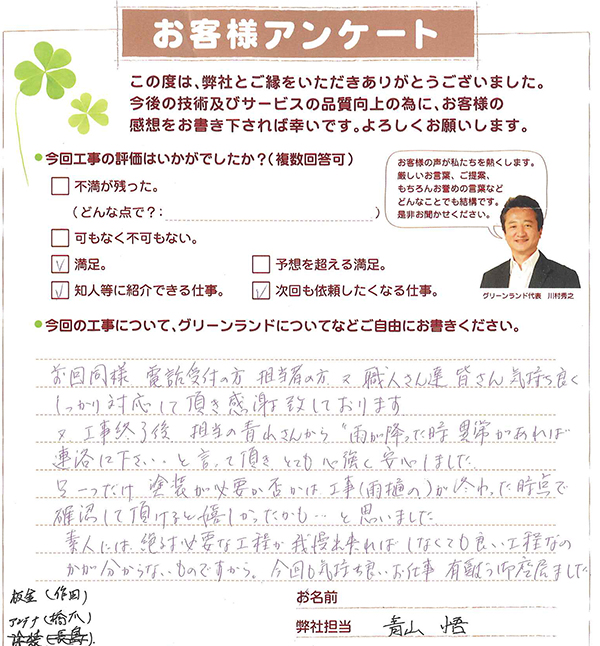 お客様アンケート
この度は、弊社とご縁をいただきありがとうございました。
今後の技術及びサービスの品質向上の為に、お客様の
感想をお書き下されば幸いです。よろしくお願いします。
今回工事の評価はいかがでしたか?(複数回答可)
不満が残った。
(どんな点で?: )
可もなく不可もない。
満足。
予想を超える満足。
知人等に紹介できる仕事。
次回も依頼したくなる仕事。
お客様の声が私たちを熱くします。
厳しいお言葉、ご提案、
もちろんお誉めの言葉など
どんなことでも結構です。
是非お聞かせください。
グリーンランド代表 川村秀之
今回の工事について、グリーンランドについてなどご自由にお書きください。
前回同様 電話受付の方 担当者の方 又 職人さん達 皆さん 気持ち良く
しっかり対応して頂き感謝致しております
又 工事終了後 担当の青山さんから “雨が降った時 異常があれば
連絡に下さい‥ と言って頂き とても心強く安心しました
只一つだけ 塗装が必要か否かは 工事(雨樋の)が終わった時点で
確認して頂けると嬉しかったかも… と思いました
素人には、絶対必要な工程か 我慢出来ればしなくても良い工程なの
かが分からないものですから。今回も気持ち良いお仕事 有難う御座居ました
お名前
弊社担当 青山 悟
板金(作田)
アンテナ(橋爪)
塗装(長島)